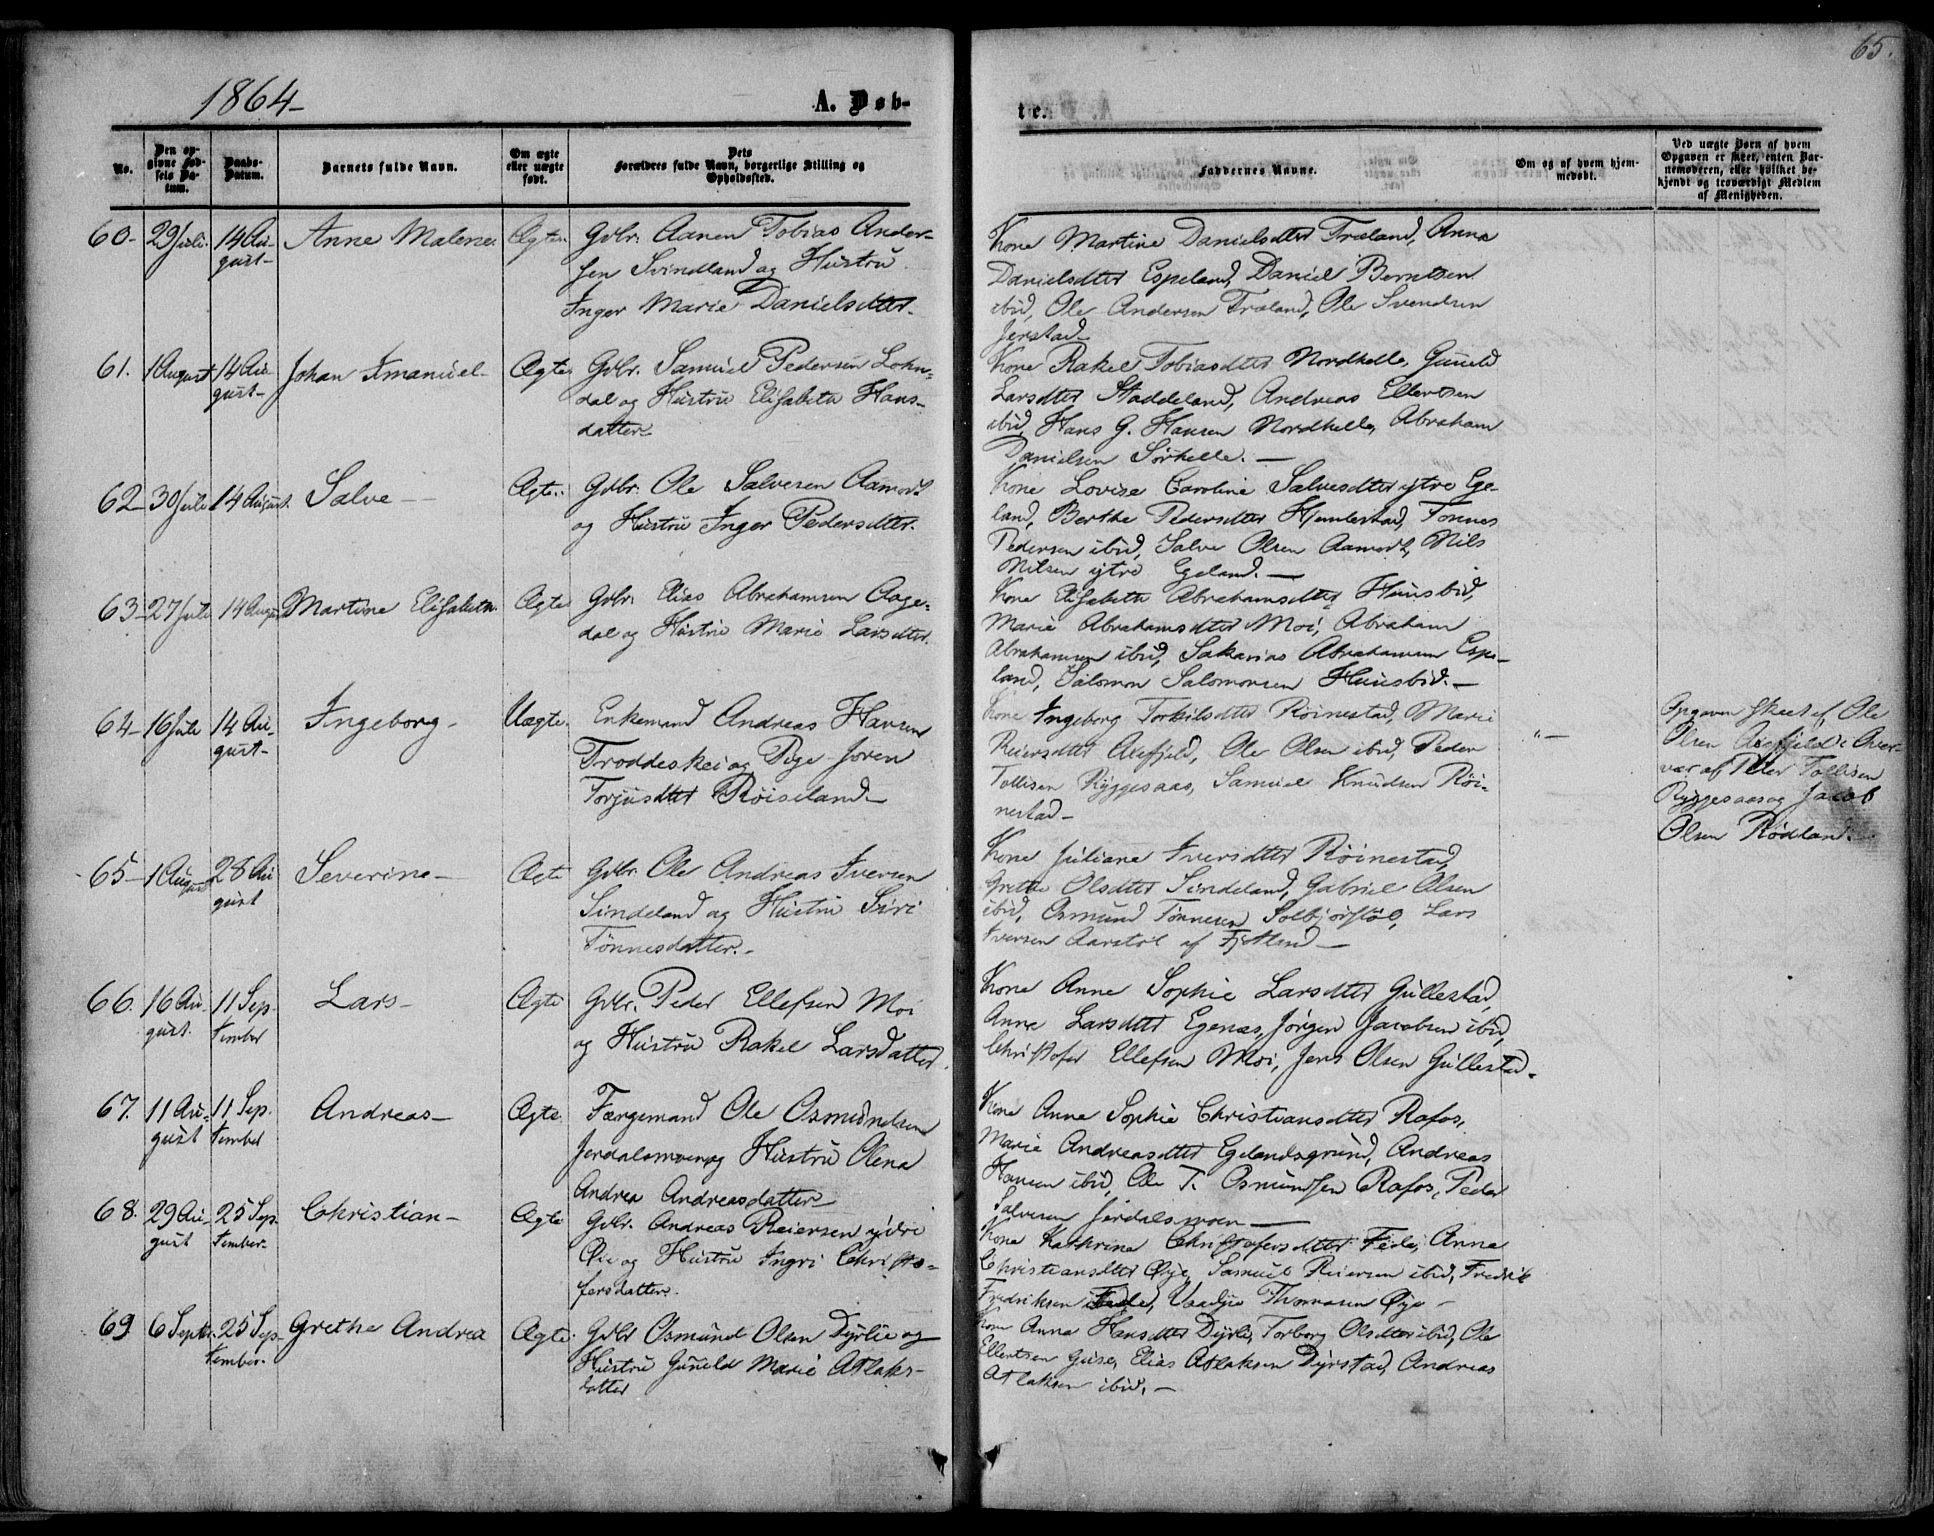 65.
1864-
A. Døb-
te.
No.
Den op-
givne Fød-
sels Da-
tum.
Daabs-
Datum.
Barnets fulde Navn.
Om ægte
eller uægte
født.
Dets
Forældres fulde Navn, borgerlige Stilling og
Opholdssted.
Faddernes Navne.
Om og af hvem hjem-
medøbt.
Ved uægte Børn af hvem
Opgaven er skeet, enten Bar-
nemoderen, eller hvilket be-
kjendt og troværdigt Medlem
af Menigheden.
60- 29 Juli. 14 Au-
gust-
Anne Malene Ægte. Gdbr. Aanen Tobias Ander-
sen Svindland og Hustru
Inger Marie Danielsdtter.
Kone Martine Danielsdtter Træland, Anna
Danielsdtter Espeland, Daniel Berntsen
ibid, Ole Andersen Træland, Ole Svendsen
Jerstad-
61. 1 August 14 Au-
gust-
Johan Imanuel- Ægte. Gdbr. Samuel Pedersen Lohn-
dal og Hustru Elisabeth Hans-
datter-
Kone Rakel Tobiasdtter Nordhelle, Gunild
Larsdtter Staddeland, Andreas Ellertsen
ibid, Hans G. Hansen Nordhelle, Abraham
Danielsen Sørhelle. -
62- 30 Juli 14 August. Salve - - Ægte. Gdbr. Ole Salvesen Aamodt
og Hustru Inger Pedersdtter.
Kone Lovise Caroline Salvesdtter ytre Ege-
land, Berthe Pedersdtter Hjemlestad, Tønnes
Pedersen ibid, Salve Olsen Aamodt, Nils
Nilsen ytre Egeland. -
63- 27 Juli 14 August Martine Elisabeth. Ægte Gdbr. Elias Abrahamsen Aage-
dal og Hustru Marie Larsdtter.
Kone Elisabeth Abrahamsdtter Huusbid,
Marie Abrahamsdtter Moi, Abraham
Abrahamsen ibid, Sakarias Abrahamsen Espe-
land, Salomon Salomonsen Huusbid. -
64- 16 Juli 14 Au-
gust-
Ingeborg- Uægte. Enkemand Andreas Hansen
Troddeskei og Pige Joren
Torjusdtter Røiseland-
Kone Ingeborg Torkilsdtter Røinestad, Marie
Reiersdtter Aefjeld, Ole Olsen ibid, Peder
Tollisen Ryggesaas, Samuel Knudsen Røi-
nestad-
" -
Opgaven skeet af Ole
Olsen Aefjeld i Over-
vær af Peder Tollisen
Ryggesaas og Jacob
Olsen Rødland.
65- 1 August 28 Au
gust
Severine- Ægte Gdbr. Ole Andreas Iversen
Sindeland og Hustru Siri
Tønnesdatter.-
Kone Juliane Iversdtter Røinestad,
Grethe Olsdtter Sindeland, Gabriel Olsen
ibid, Osmund Tønnesen Solbjørstøl, Lars
Iversen Aarstøl af Fjotland-
66. 16 Au-
gust.
11 Sep-
tember
Lars- Ægte Gdbr. Peder Ellefsen Moi
og Hustru Rakel Larsdatter.
Kone Anne Sophie Larsdtter Gullestad,
Anne Larsdtter Egenæs, Jørgen Jacobsen ibid,
Christofer Ellefsen Moi, Jens Olsen Gullestad.
67. 11 Au-
gust
11 Sep.
tember
Andreas- Ægte. Færgemand Ole Osmundsen
Jerdalsmoen og Hustru Olena
Andrea Andreasdatter-
Kone Anne Sophie Christiansdtter Rafos,
Marie Andreasdtter Egelandsgrund, Andreas
Hansen ibid, Ole T. Osmundsen Rafos, Peder
Salvesen Jerdalsmoen-
68. 29 Au-
gust
25 Sep-
tember-
Christian- Ægte Gdbr. Andreas Reiersen ydre
Øie og Hustru Ingri Christo-
fersdatter.
Kone Kathrine Christofersdtter Fede, Anne
Christiansdtter Øye, Samuel Reiersen ibid, Fredrik
Fredriksen Fede, Thomasen Øye -
69 6 Septr. 25 Sep-
tember.
Grethe Andrea Ægte. Gdbr Osmund Olsen Dyrlie og
Hustru Gunild Marie Atlaks-
datter
Kone Anna Hansdtter Dyrli, Torborg Olsdtter ibid, Ole
Ellertsen Guse, Elias Atlaksen Dyrstad, Andreas
Atlaksen ibid. -